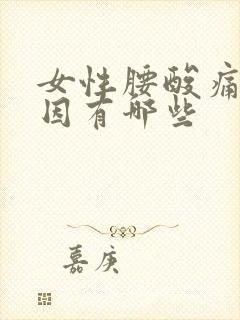 女性腰酸痛
因有哪些
嘉庚